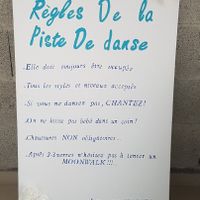 Règles De la
Piste De danse
.Elle doit toujours être occupée
.Tous les styles et niveaux acceptés
.Si vous ne dansez pas, CHANTEZ!
.On ne laisse pas bébé dans un coin!
.Chaussures NON obligatoires...
.Après 2-3 verres n'hésitez pas à tenter un
MOONWALK!!!